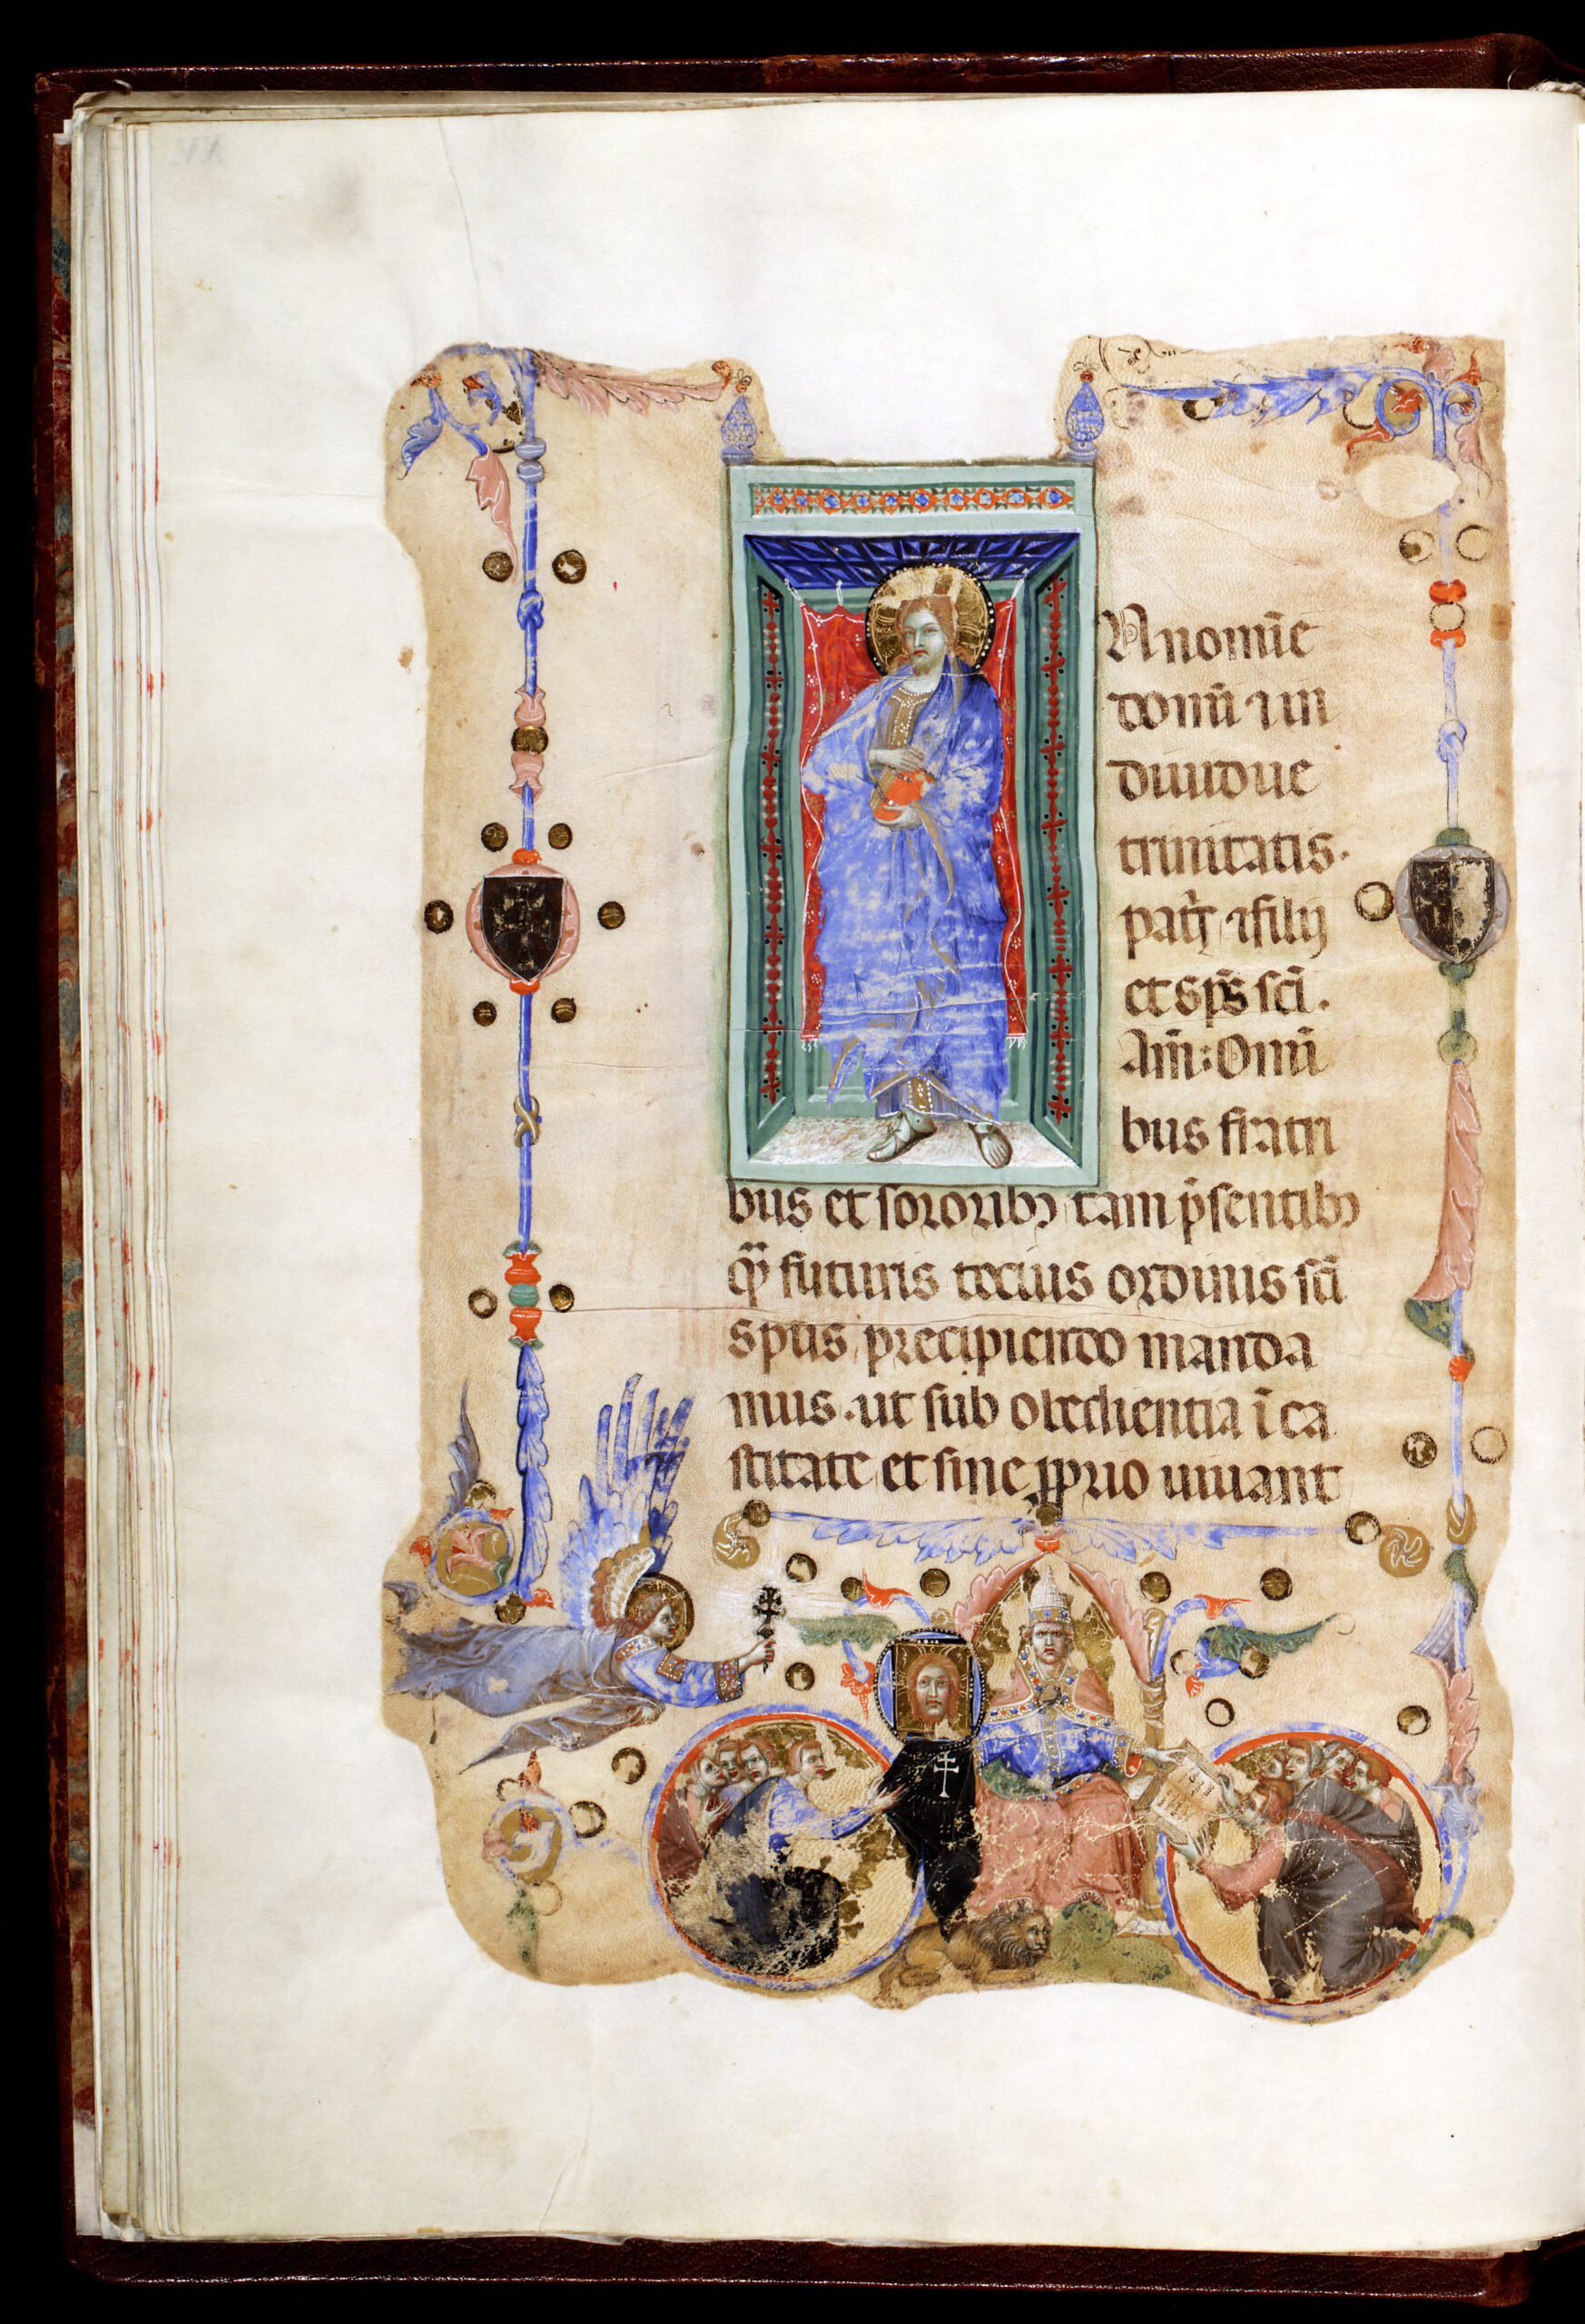 N nomīe
domī ⁊ in
diuidue
trinitatis.
patͥs ⁊ filij
et sp̄s sc̄i.
Am̄: Omī
bus fratri
bus et sororibꝫ tam p̄sentibꝫ
qͣꝫ futuris tocius ordinis sc̄i
sp̄us precipiendo manda
mus. ut sub obedientia ī ca
stitate et sine ꝓprio uiuant